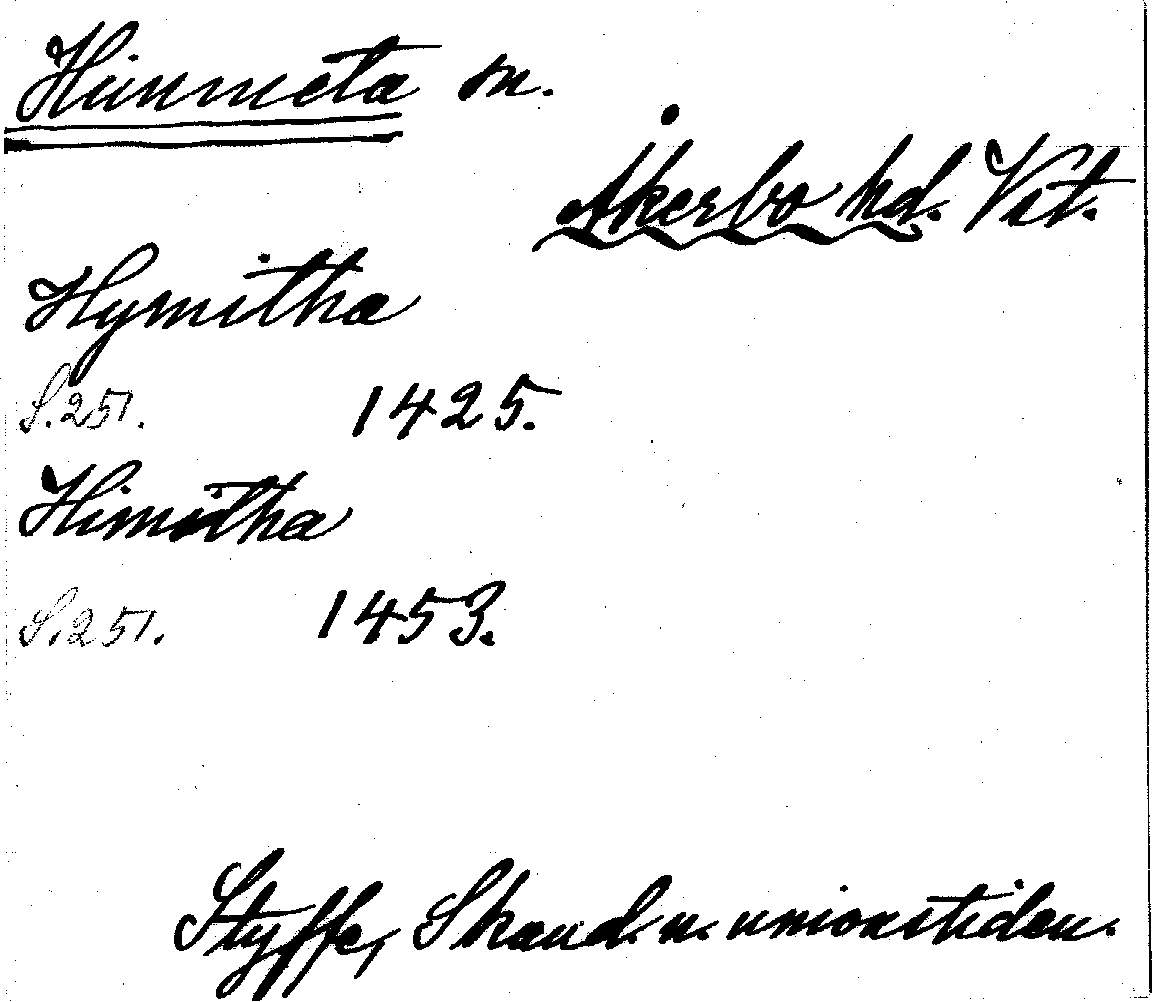 Himmeta sn.
Åkerbo hd. Vst.
Hymitha
S. 251. 1425.
Himitha
S. 251. 1453.
Styffe, Skand. u. unionstiden.